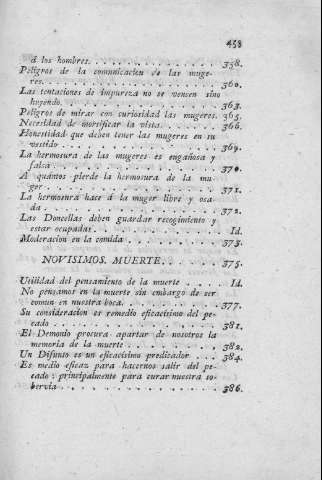 458
á los hombres. . . . . . . . . . . . . . 358.
Peligros de la comunicacion de las muge-
res. . . . . . . . . . . . . . . . . . . 360.
Las tentaciones de impureza no se vencen sino
huyendo. . . . . . . . . . . . . . . . . 363.
Peligros de mirar con curiosidad las mugeres. 365.
Necesidad de mortificar la vista. . . . . . . 366.
Honestidad que deben tener las mugeres en su
vestido . . . . . . . . . . . . . . . . . 369.
La hermosura de las mugeres es engañosa y
falsa . . . . . . . . . . . . . . . . . . 370.
A quántos pierde la hermosura de la mu-
ger . . . . . . . . . . . . . . . . . . . 371.
La hermosura hace á la muger libre y osa-
da . . . . . . . . . . . . . . . . . . . 372.
Las Doncellas deben guardar recogimiento y
estar ocupadas . . . . . . . . . . . . . Id.
Moderacion en la comida . . . . . . . . . 373.
NOVISIMOS. MUERTE. . . . . . 375.
Utilidad del pensamiento de la muerte . . . . Id.
No pensamos en la muerte sin embargo de ser
comun en nuestra boca. . . . . . . . . . 377.
Su consideracion es remedio eficacísimo del pe-
cado . . . . . . . . . . . . . . . . . . 381.
El Demonio procura apartar de nosotros la
memoria de la muerte . . . . . . . . . . 382.
Un Difunto es un eficacísimo predicador . . . 384.
Es medio eficaz para hacernos salir del pe-
cado : principalmente para curar nuestra so-
bervia . . . . . . . . . . . . . . . . . 386.